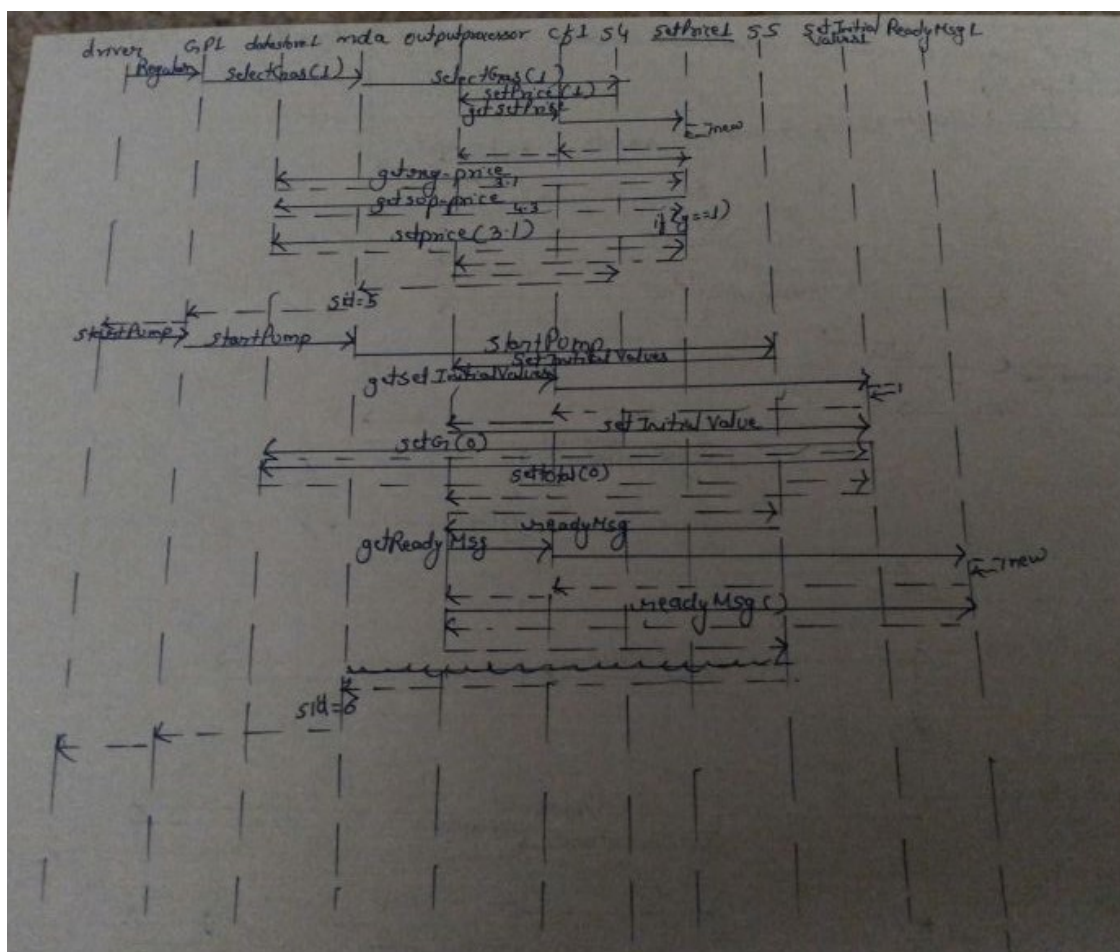 driver GP1 datastore1 mda outputprocessor cf1 S4 setPrice1 S5 set Initial Values1 ReadyMsg1
Regular selectGas(1) selectGas(1)
setPrice(1)
getsetPrice
new
getreg-price
3.1
getsup-price
4.3
if (g==1)
setprice(3.1)
sid=5
startPump startPump startPump
Set Initial Values
getset InitialValues
set Initial Value
setG(0)
settotal(0)
readyMsg
getReady Msg
new
readyMsg()
sid=6